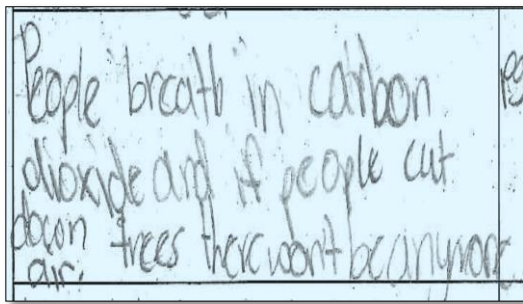 People breath in carbon
dioxide and if people cut
down trees there wont be anymore
air.